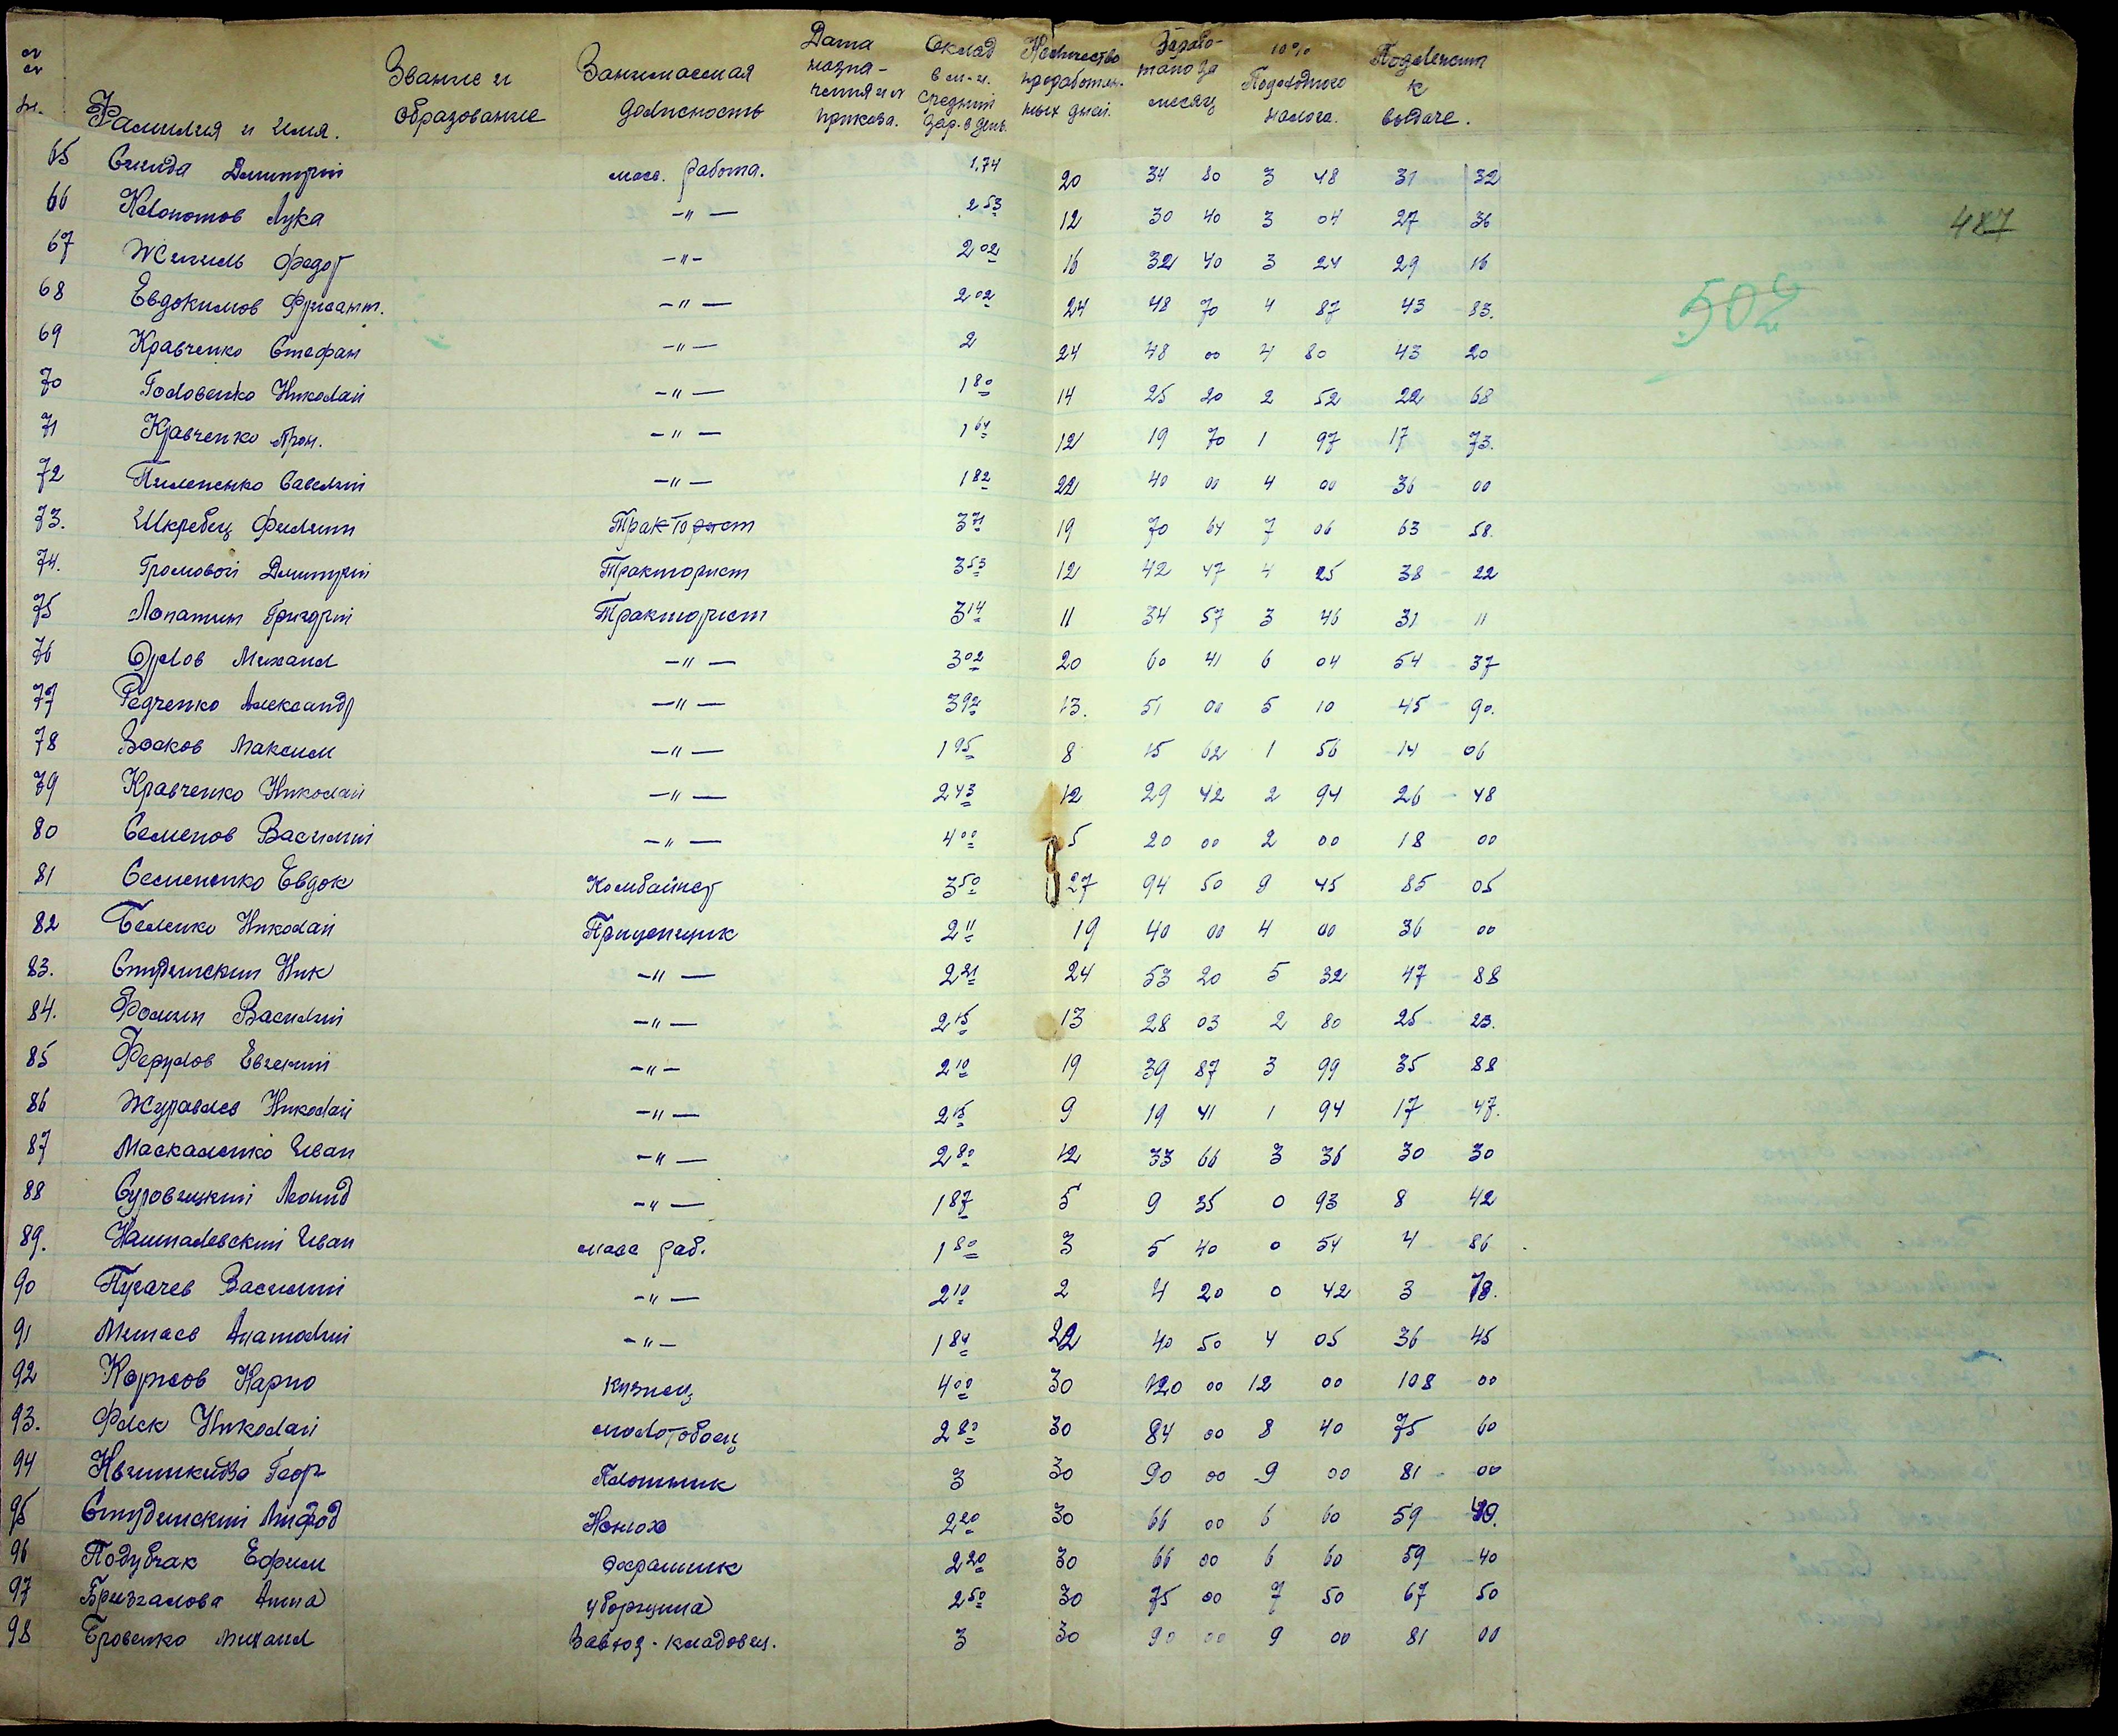 №№ пп. Фамилия и имя. Звание и образование Занимаемая должность Дата назначения и № приказа. Оклад в м-ц. средний зар. в день. Количество проработанных дней. Заработано за месяц 10% Подоходного налога. Подлежит к выдаче.
65 Димитрий масс. работа. 1.74 20 34 80 3 48 31 32
66 Клопотов Лука -"- 2 53 12 30 40 3 04 27 36
487
67 Жигиль Федот -"- 2 02 16 32 40 3 24 29 16
68 Евдокимов -"- 2 02 24 48 70 4 87 43 83.
502
69 Кравченко Стефан -"- 2 24 48 00 4 80 43 20
70 Головенко Николай -"- 1 80 14 25 20 2 52 22 68
71 Кравченко -"- 1 64 12 19 70 1 97 17 73.
72 Пилепенко Савелий -"- 1 82 22 40 00 4 00 36 00
73. Шкребец Филипп Тракторист 3 71 19 70 64 7 06 63 58.
74. Громовой Димитрий Тракторист 3 53 12 42 47 4 25 38 22
75 Лопатин Григорий Тракторист 3 14 11 34 57 3 46 31 11
76 Орлов Михаил -"- 3 02 20 60 41 6 04 54 37
77 Редченко Александр -"- 3 92 13. 51 00 5 10 45 90.
78 Восков Максим -"- 1 95 8 15 62 1 56 14 06
79 Кравченко Николай -"- 2 43 12 29 42 2 94 26 48
80 Семенов Василий -"- 4 00 5 20 00 2 00 18 00
81 Семененко Евдок Комбайнер 3 50 27 94 50 9 45 85 05
82 Беленко Николай Прицепщик 2 11 19 40 00 4 00 36 00
83. Студинский Ник -"- 2 21 24 53 20 5 32 47 88
84. Фомин Василий -"- 2 15 13 28 03 2 80 25 23.
85 Ферулов Евгений -"- 2 10 19 39 87 3 99 35 88
86 Журавлев Николай -"- 2 15 9 19 41 1 94 17 47.
87 Маскаленко Иван -"- 2 80 12 33 66 3 36 30 30
88 Суровицкий Леонид -"- 1 87 5 9 35 0 93 8 42
89. Нашталевский Иван масс раб. 1 80 3 5 40 0 54 4 86
90 Пугачев Василий -"- 2 10 2 4 20 0 42 3 78.
91 Митасв Анатолий -"- 1 84 22 40 50 4 05 36 45
92 Карпо Кузнец 4 00 30 120 00 12 00 108 00
93. Флек Николай молотобоец 2 80 30 84 00 8 40 75 60
94 Геор Плотник 3 30 90 00 9 00 81 00
95 Студинский Конюх 2 20 30 66 00 6 60 59 40.
96 Подубчак Ефим охранник 2 20 30 66 00 6 60 59 40
97 Бризгалова Анна уборщица 2 50 30 75 00 7 50 67 50
98 Бровенко Михаил Завхоз-кладовщ. 3 30 90 00 9 00 81 00